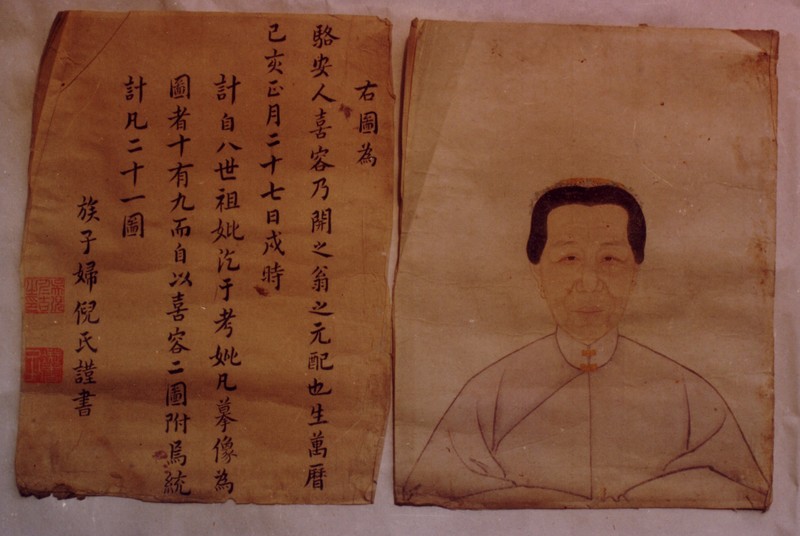 右圖為
駱安人喜容乃開之翁之元配也生萬曆
己亥正月二十七日戌時
計自八世祖妣迄于考妣凡摹像為
圖者十有九而自以喜容二圖附焉統
計凡二十一圖
族子婦倪氏謹書